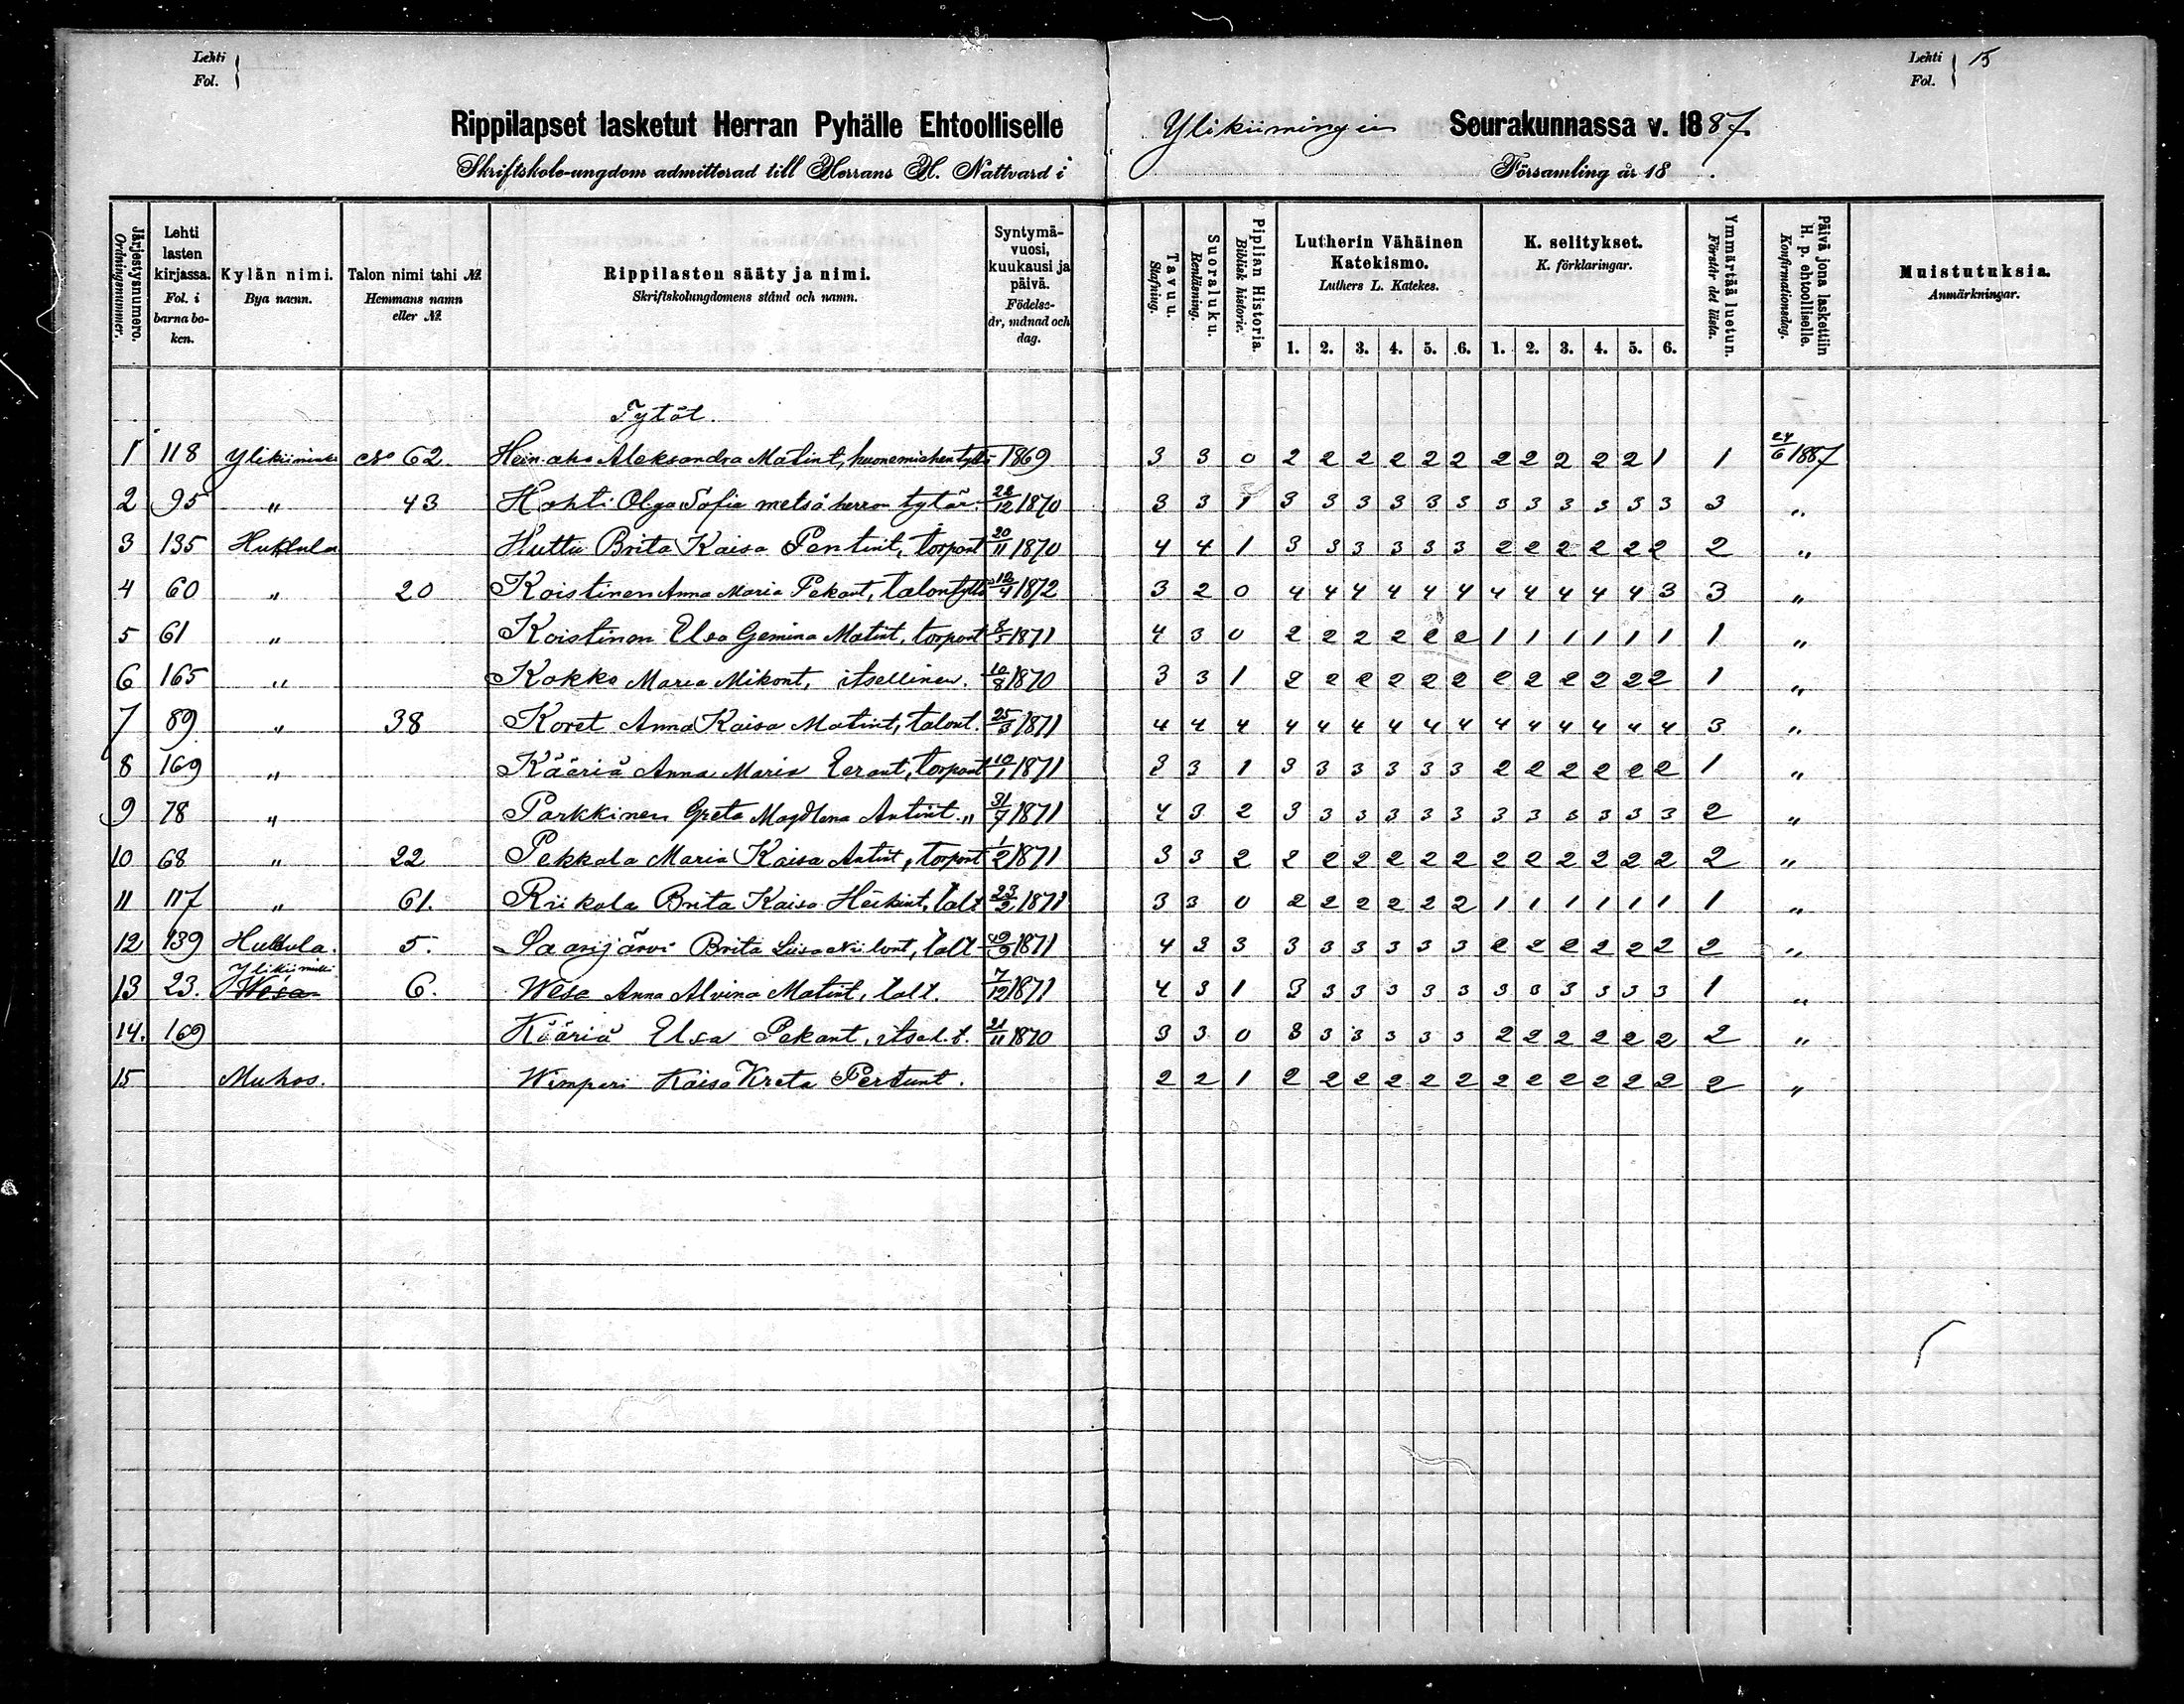 Lehti
Fol.
Lehti 15
Fol.
Rippilapset lasketut Herran Pyhälle Ehtoolliselle Ylikiimingin Seurakunnassa v. 1887.
Skriftskole-ungdom admitterad till Herrans H. Nattvard i Församling år 18 .
Järjestysnumero. Ordningsnummer.
Lehti lasten kirjassa. Fol. i barna boken.
Kylän nimi. Bya namn.
Talon nimi tahi № Hemmans namn eller №
Rippilasten sääty ja nimi. Skriftskolungdomens stånd och namn.
Syntymävuosi, kuukausi ja päivä. Födelseår, månad och dag.
Tavuu. Stafning.
Suoraluku. Renläsning.
Piplian Historia. Biblisk historie.
Lutherin Vähäinen Katekismo. Luthers L. Katekes.
K. selitykset. K. förklaringar.
Ymmärtää luetun. Förstår det lästa.
Päivä jona laskettiin H. p. ehtoolliselle. Konfirmationsdag.
Muistutuksia. Anmärkningar.
1. 2. 3. 4. 5. 6. 1. 2. 3. 4. 5. 6.
Tytöt.
1 118 Ylikiiminki № 62 Heinaho Aleksandra Matint, huonemiehen tyttö 1869 3 3 0 2 2 2 2 2 2 2 2 2 2 2 1 1 24/6 1887
2 95 " 43 Hohti Olga Sofia metsäherran tytär 28/12 1870 3 3 1 3 3 3 3 3 3 3 3 3 3 3 3 3 "
3 135 Huttula Huttu Brita Kaisa Pentint, torpant 20/11 1870 4 4 1 3 3 3 3 3 3 2 2 2 2 2 2 2 "
4 60 " 20 Koistinen Anna Maria Pekant, talontyttö 12/4 1872 3 2 0 4 4 4 4 4 4 4 4 4 4 4 3 3 "
5 61 " Koistinen Elsa Gemina Matint, torpant 8/5 1871 4 3 0 2 2 2 2 2 2 1 1 1 1 1 1 1 "
6 165 " Kokko Maria Mikont, itsellinen. 10/8 1870 3 3 1 2 2 2 2 2 2 2 2 2 2 2 2 1 "
7 89 " 38 Koret Anna Kaisa Matint, talont. 25/3 1871 4 4 4 4 4 4 4 4 4 4 4 4 4 4 4 3 "
8 169 " Kääriä Anna Maria Eerant, torpant 10/1 1871 3 3 1 3 3 3 3 3 3 2 2 2 2 2 2 1 "
9 78 " Parkkinen Greta Magdlena Antint. " 31/7 1871 4 3 2 3 3 3 3 3 3 3 3 3 3 3 3 2 "
10 68 " 22 Pekkala Maria Kaisa Antint, torpant 1/2 1871 3 3 2 2 2 2 2 2 2 2 2 2 2 2 2 2 "
11 117 " 61. Riikola Brita Kaisa Heikint, talt 23/2 1871 3 3 0 2 2 2 2 2 2 1 1 1 1 1 1 1 "
12 139 Huttula. 5. Saarijärvi Brita Liisa Niilont, talt 1871 4 3 3 3 3 3 3 3 3 2 2 2 2 2 2 2 "
13 23. Ylikiiminki Wesa 6. Wesa Anna Alvina Matint, talt. 7/12 1871 4 3 1 3 3 3 3 3 3 3 3 3 3 3 3 1 "
14. 169 Kääriä Elsa Pekant, itsel. t. 21/11 1870 3 3 0 3 3 3 3 3 3 2 2 2 2 2 2 2 "
15 Muhos. Wimpari Kaisa Kreta Pertunt. 2 2 1 2 2 2 2 2 2 2 2 2 2 2 2 2 "